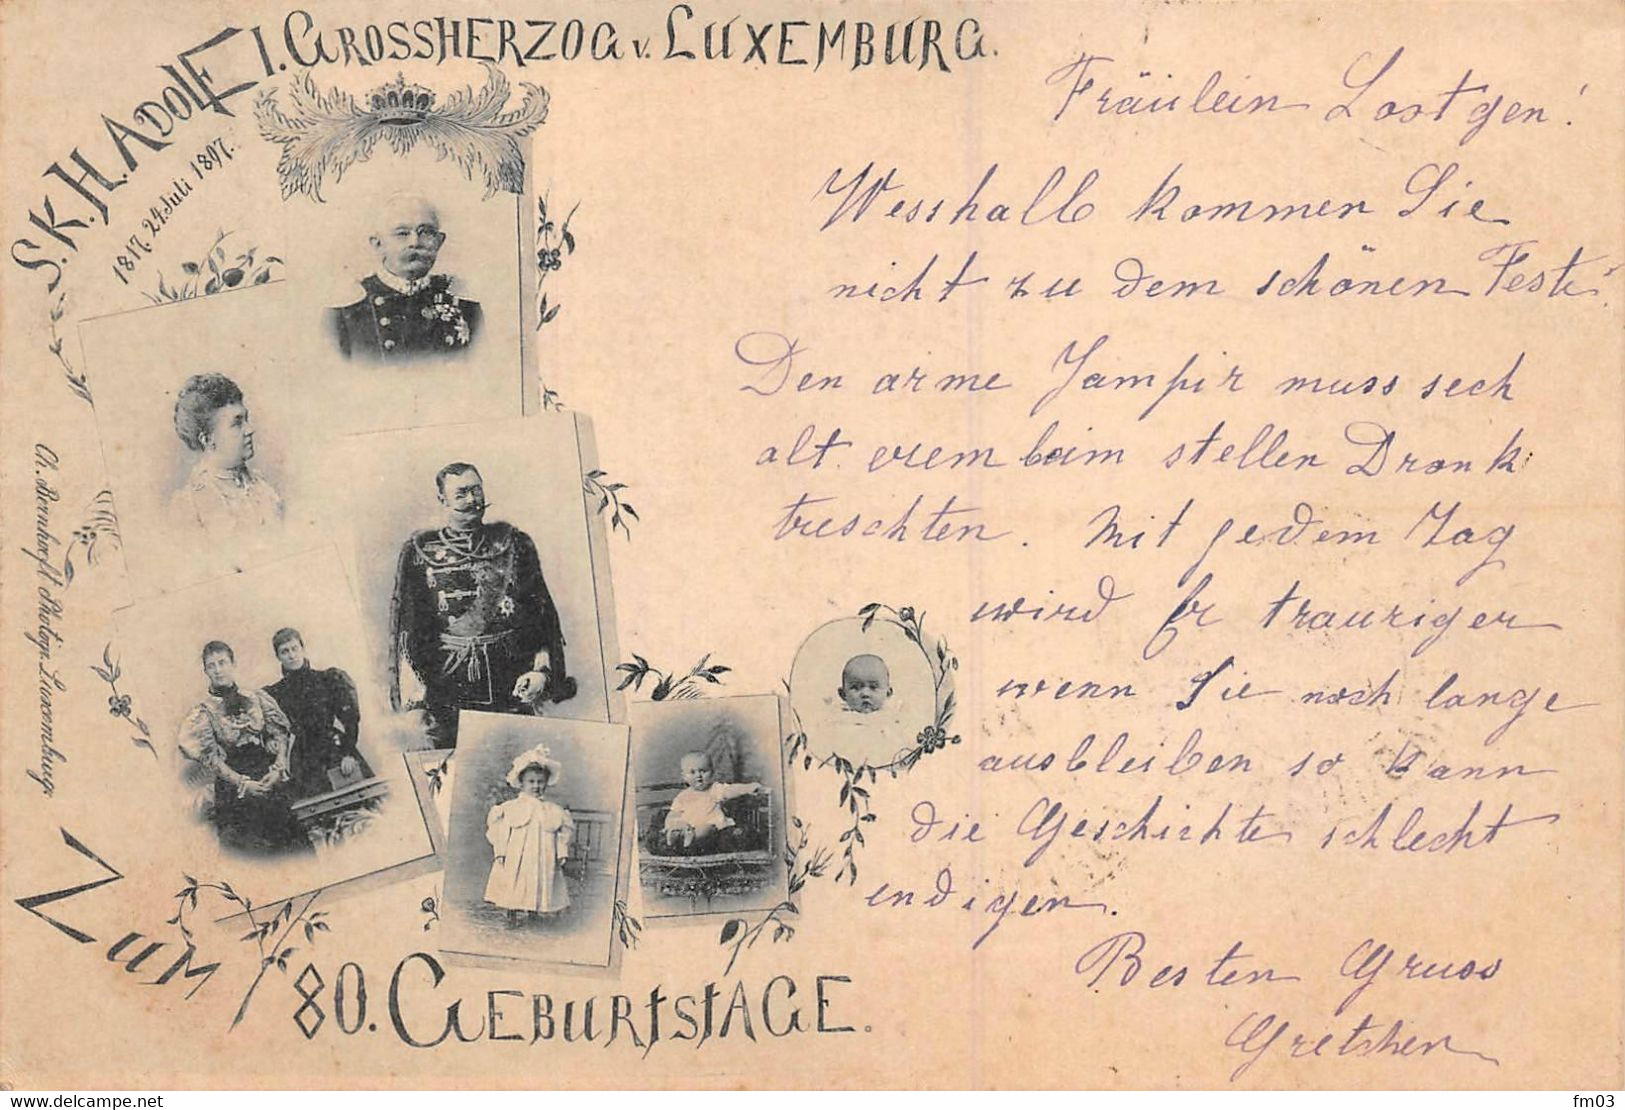 S.K.H. ADOLF I. GROSSHERZOG v. LUXEMBURG.
1817. 24. Juli 1897.
Ch. Bernhoeft Photogr. Luxemburg.
ZUM
80. GEBURTSTAGE.
Fräulein Lostgen!
Wesshalb kommen Sie
nicht zu dem schönen Feste?
Den arme Jampir muss sech
alt erem beim stellen Dronk
treschten. Mit jedem Tag
wird Er trauriger
wenn Sie noch lange
ausbleiben so kann
die Geschichte schlecht
endigen.
Besten Gruss
Gretchen
delcampe.net
fm03